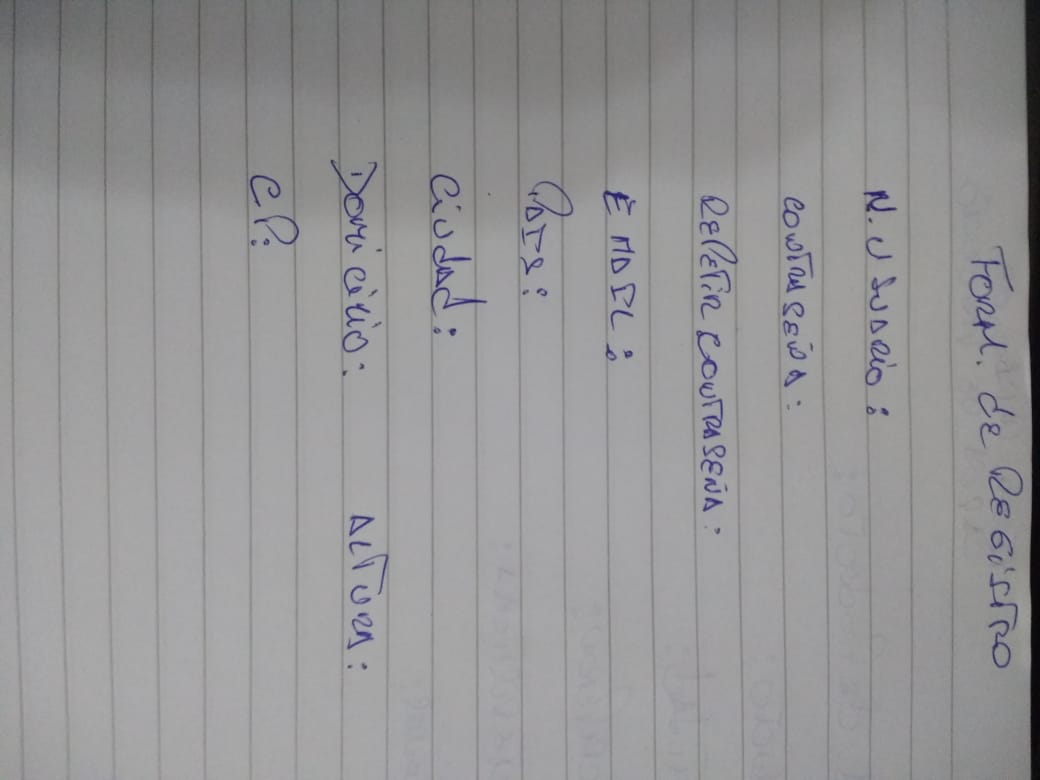 Form. de REGISTRO
N. USUARIO:
CONTRASEÑA:
REPETIR CONTRASEÑA:
EMAIL:
PAIS:
Ciudad:
Domicilio: ALTURA:
CP: